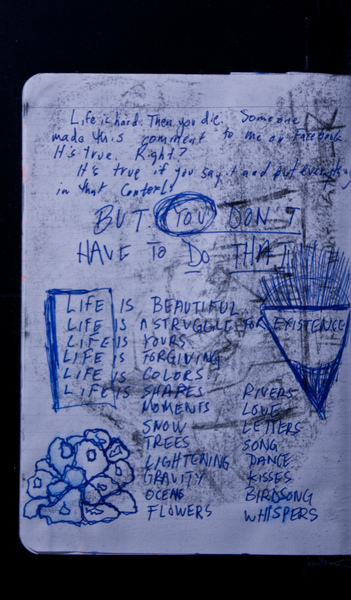 Life is hard. Then you die. Someone
made this comment to me on Facebook.
It's true. Right?
It's true if you say it and put everything
in that context.
BUT YOU DON'T
HAVE TO DO THAT
LIFE IS BEAUTIFUL
LIFE IS A STRUGGLE FOR EXISTENCE
LIFE IS YOURS
LIFE IS FORGIVING
LIFE IS COLORS
LIFE IS SHAPES RIVERS
MOMENTS LOVE
SNOW LETTERS
TREES SONG
LIGHTENING DANCE
GRAVITY KISSES
OCENS BIRDSONG
FLOWERS WHISPERS